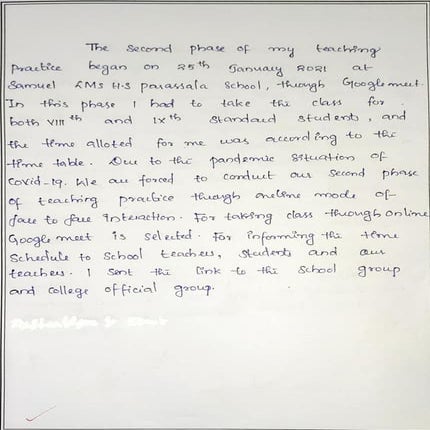 The second phase of my teaching
Practice began on 25th January 2021 at
Samuel LMS H.S parassala School, through Googlemeet.
In this phase I had to take the class for
both VIIIth and IXth Standard Students, and
the time alloted for me was according to the
time table. Due to the pandemic situation of
Covid-19. We all forced to conduct our Second phase
of teaching practice through online mode of
face to face Interaction. For taking class through online
Google meet is selected. For informing the time
Schedule to School teachers, Students and our
teachers. I sent the link to the School group
and college official group.